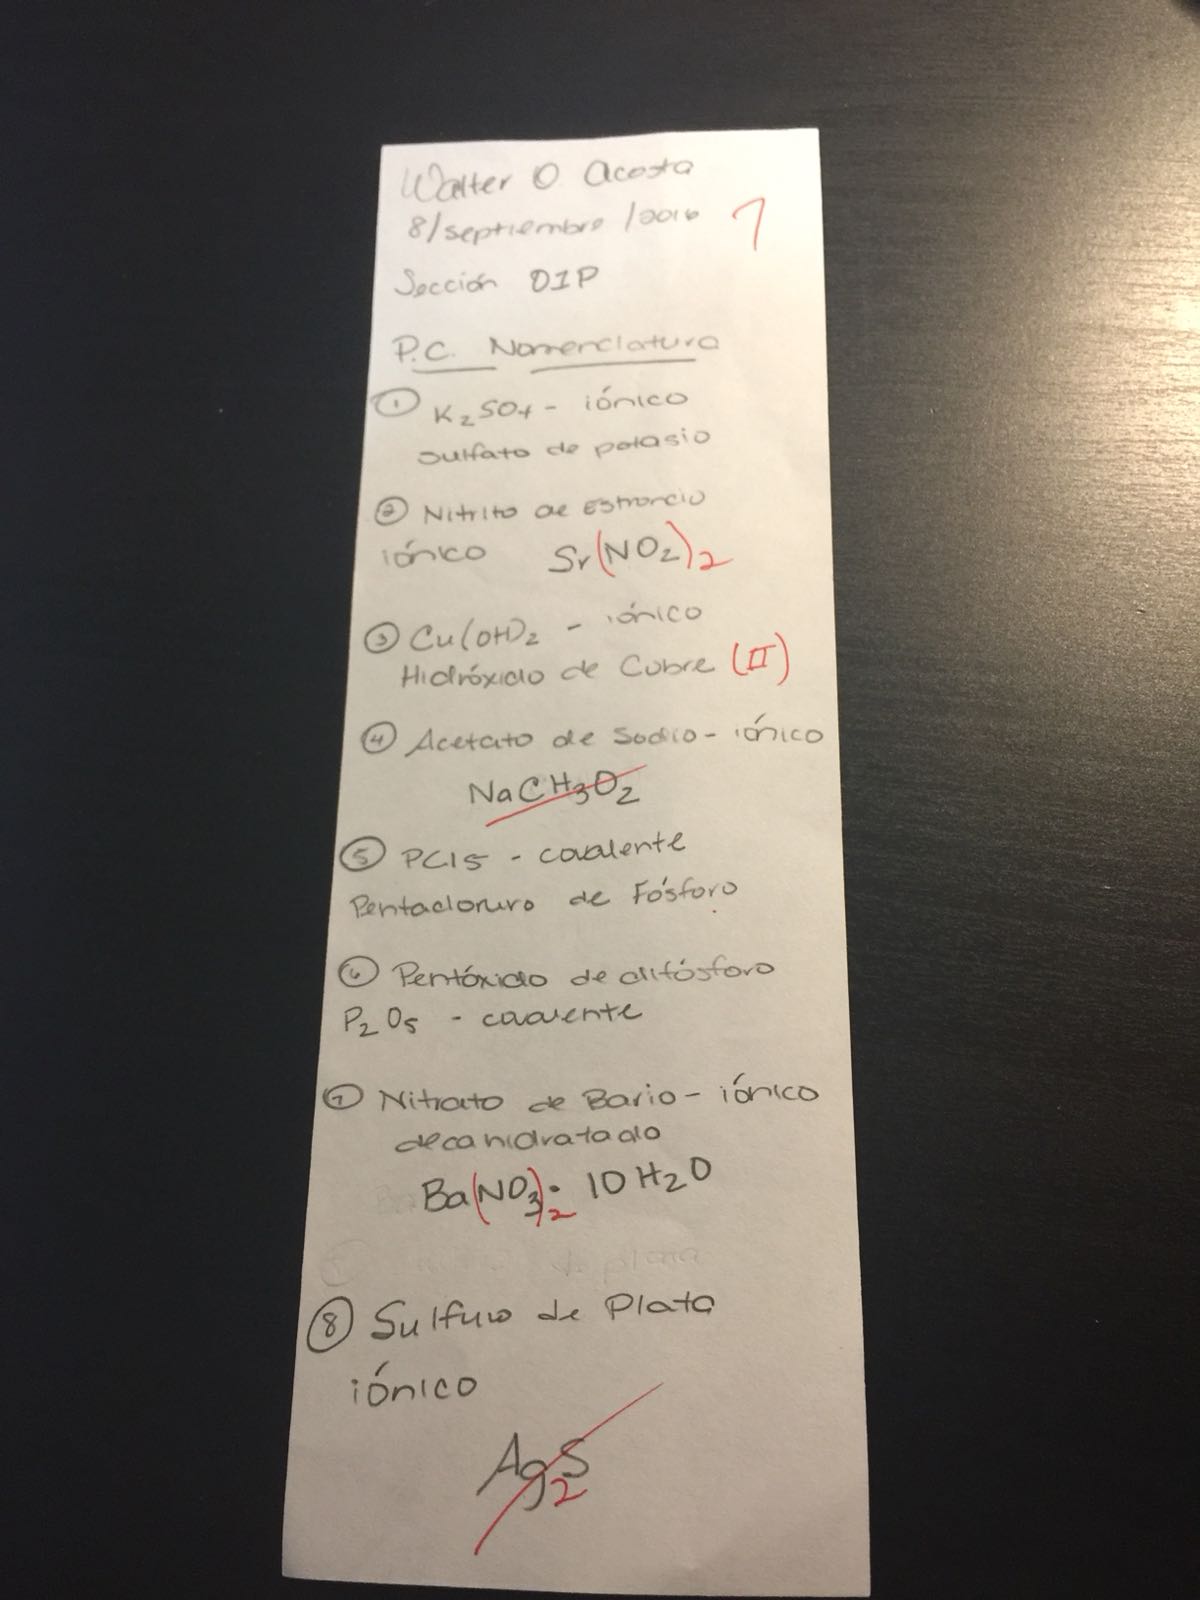 Walter O Acosta
8/septiembre/2016 7
Sección 01P
P.C. Nomenclatura
① K2SO4 - iónico
sulfato de potasio
② Nitrito de Estroncio
iónico Sr(NO2)2
③ Cu(OH)2 - iónico
Hidróxido de Cobre (II)
④ Acetato de Sodio - iónico
NaCH3O2
⑤ PCl5 - covalente
Pentacloruro de Fósforo
⑥ Pentóxido de difósforo
P2O5 - covalente
⑦ Nitrato de Bario - iónico
decahidratado
Ba(NO3)2 · 10 H2O
⑧ Sulfuro de Plata
iónico
Ag2S